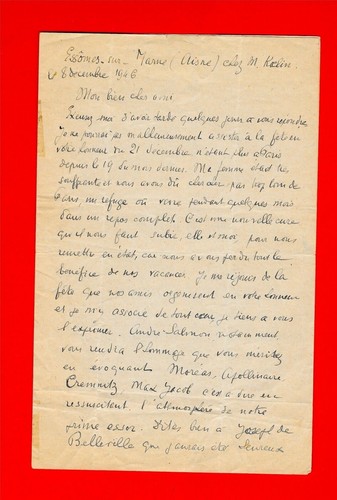 Essômes-sur-Marne (Aisne) chez M.
le 8 décembre 1946
Mon bien cher ami,
Excusez moi d'avoir tardé quelques jours à vous répondre
Je ne pourrai pas malheureusement assister à la fête en
votre honneur du 21 décembre n'étant plus à Paris
depuis le 19 du mois dernier. Ma femme étant très
souffrante et nous avons dû chercher pas trop loin de
Paris, un refuge où vivre pendant quelques mois
dans un repos complet. C'est une nouvelle cure
qu'il nous faut subir elle et moi pour nous
remettre en état, car nous avons perdu tout le
bénéfice de nos vacances. Je me réjouis de la
fête que nos amis organisent en votre honneur
et je m'y associe de tout cœur je tiens à vous
l'exprimer. André Salmon notamment
vous rendra l'hommage que vous méritez
en évoquant Moréas, Apollinaire,
Cremnitz, Max Jacob c'est à dire en
ressuscitant l'atmosphère de notre
prime essor. Dites bien à Joseph de
Belleville que j'aurais été heureux